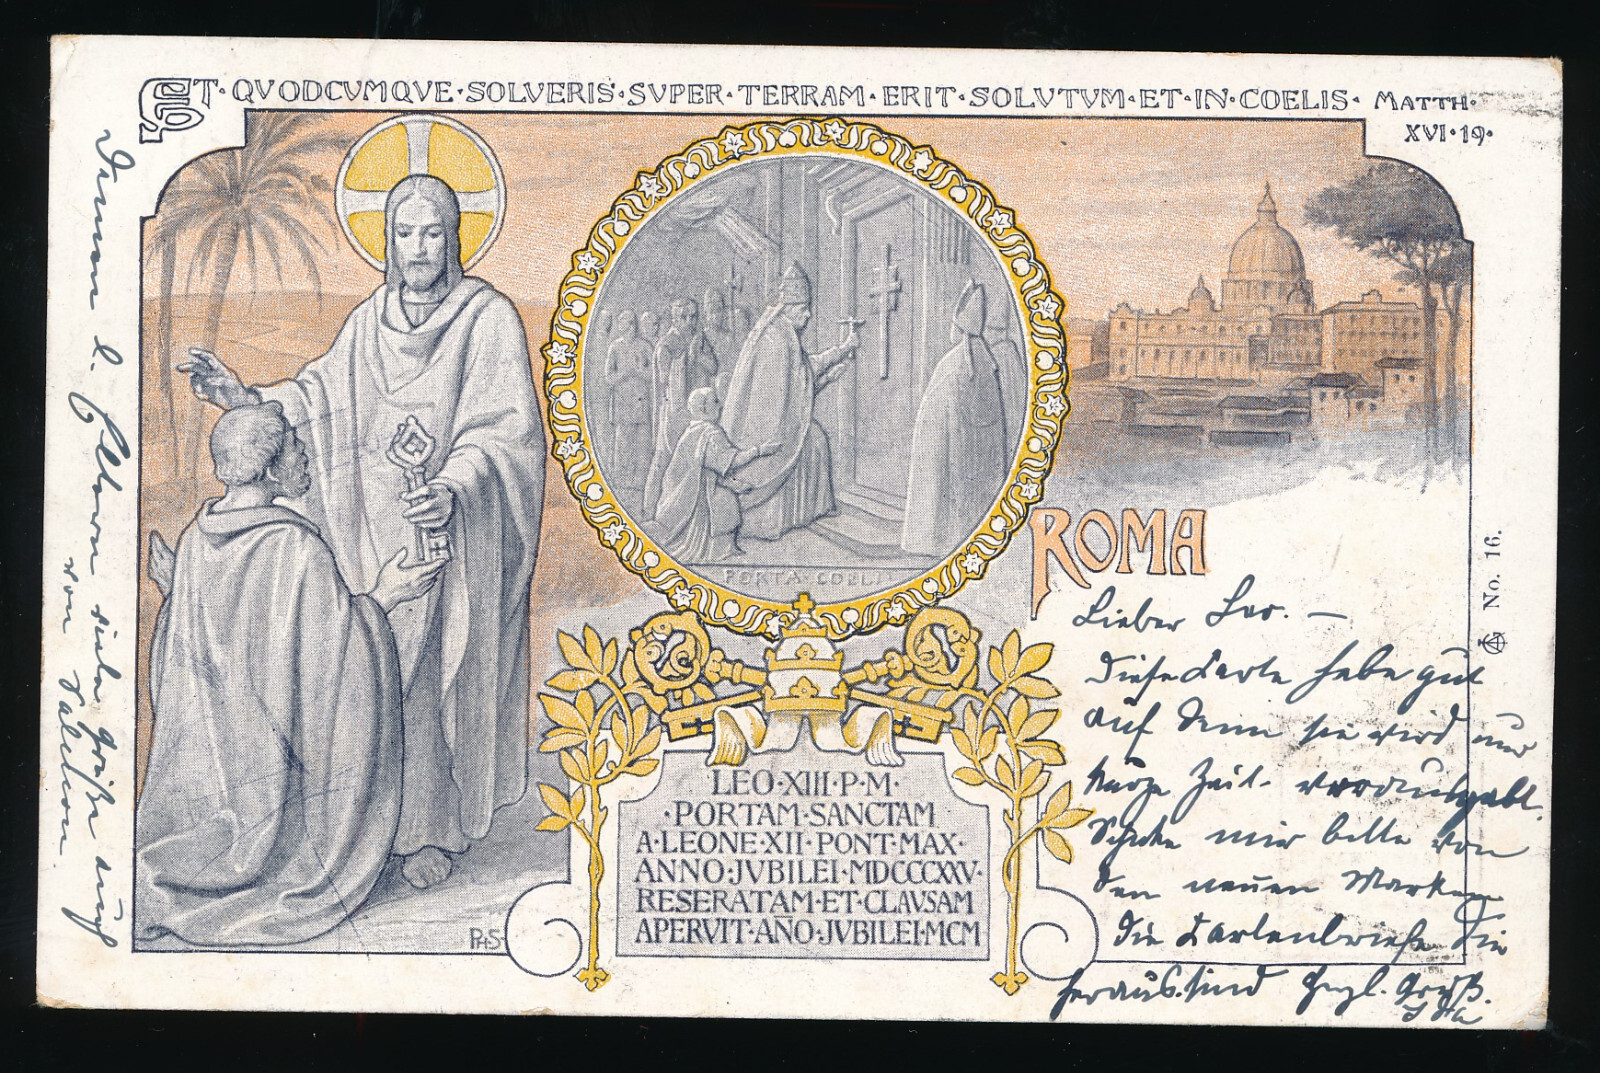 ET · QVODCVMQVE · SOLVERIS · SVPER · TERRAM · ERIT · SOLVTVM · ET · IN · COELIS · MATTH ·
XVI · 19 ·
PORTA · COELI
ROMA
LEO · XIII · P · M ·
· PORTAM · SANCTAM
A · LEONE · XII · PONT · MAX ·
ANNO · JVBILEI · MDCCCXXV ·
RESERATAM · ET · CLAVSAM
APERVIT · AÑO · JVBILEI · MCM
PHS
No. 16.
Lieber Leo. —
diese Karte hebe gut
auf denn sie wird nur
kurze Zeit
Schicke mir bitte von
den neuen Marken
die Kartenbriefe die
heraus sind Hrzl. Gruß.
Deinen l. Eltern viele Grüße auch
von